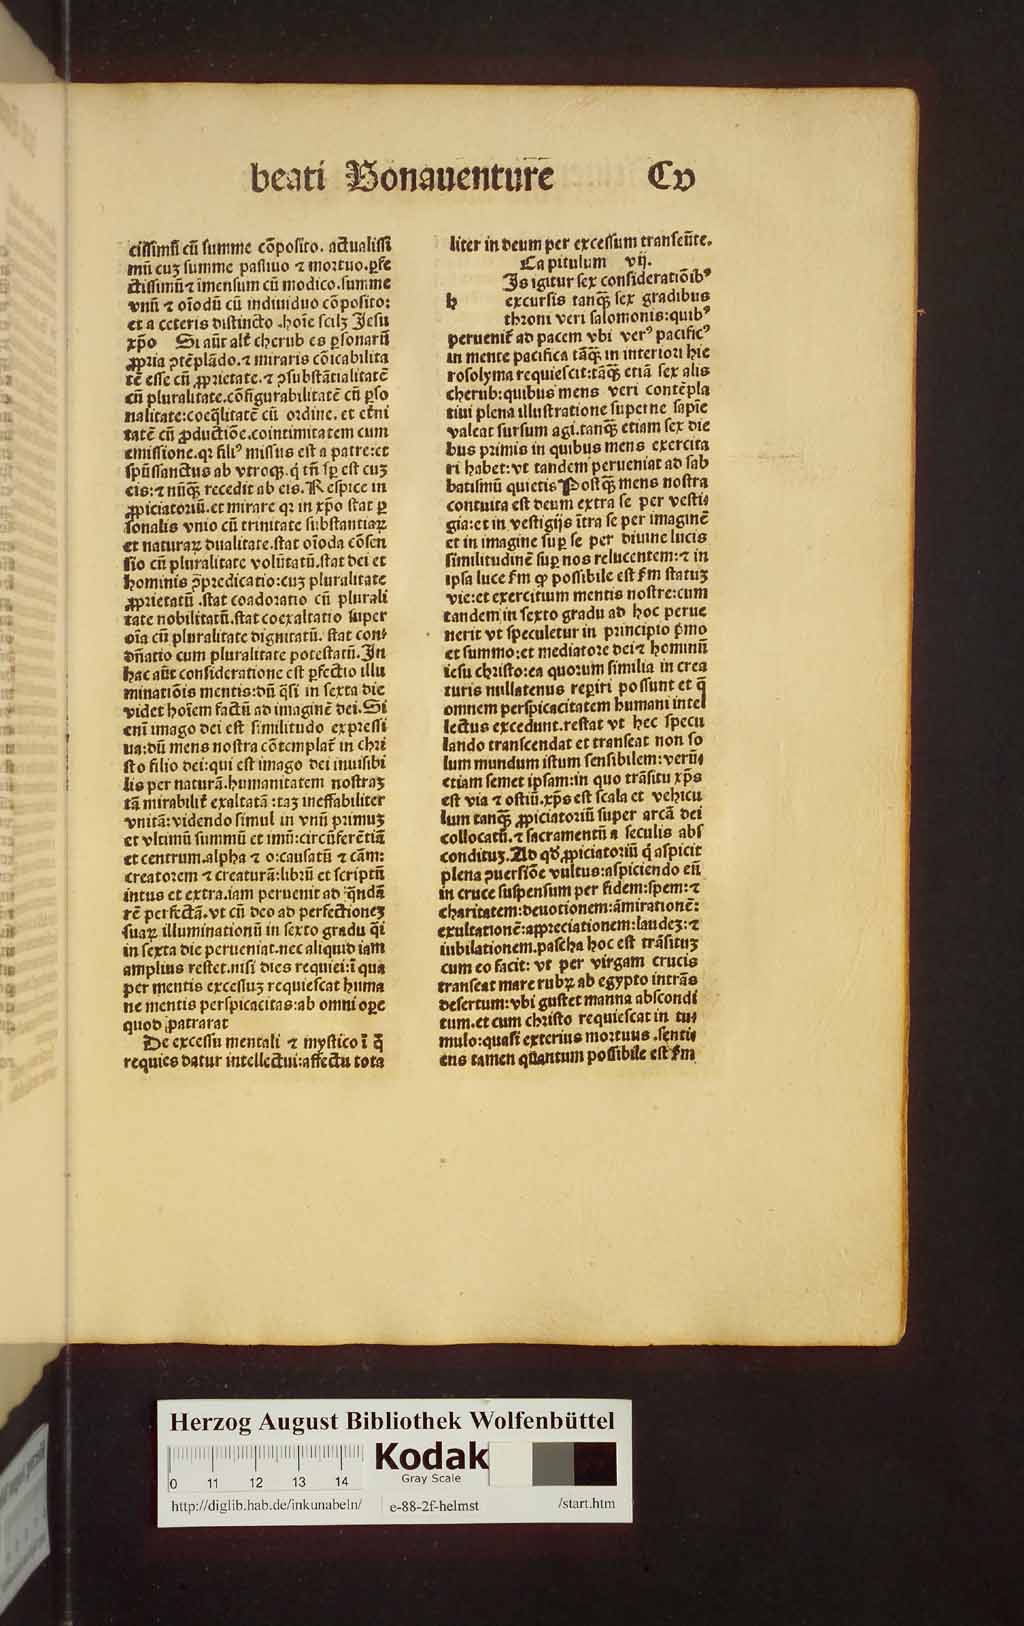 beati Bonauenture Cv
cissimū cū summe cōposito. actualissi
mū cuȝ summe passiuo ⁊ mortuo. ꝑfe
ctissimū ⁊ īmensum cū modico. summe
vnū ⁊ oīodū cū indiuiduo cōposito:
et a ceteris distincto .hoīe scilȝ Jesu
xp̄o Si aūt alt̄ cherub es ꝑsonarū
ꝓpria ꝯtēplādo. ⁊ miraris cōicabilita
tē esse cū ꝓprietate. ⁊ ꝯsubstātialitatē
cū pluralitate. cōfigurabilitatē cū ꝑso
nalitate: coeq̄litatē cū ordine. et et̄ni
tatē cū ꝓductiōe. cointimitatem cum
emissione. qꝛ filiꝰ missus est a patre: et
spūssanctus ab vtroqꝫ. q̇ tn̄ sp̄ est cuȝ
eis: ⁊ nūq̄ꝫ recedit ab eis. Respice in
ꝓpiciatoriū. et mirare qꝛ in xp̄o stat ꝑ
sonalis vnio cū trinitate substantiaꝝ
et naturaꝝ dualitate. stat oīoda cōsen
sio cū pluralitate volūtatū. stat dei et
hominis p̄predicatio: cuȝ pluralitate
ꝓprietatū .stat coadoratio cū plurali
tate nobilitatū. stat coexaltatio super
oīa cū pluralitate dignitatū. stat con⸗
dn̄atio cum pluralitate potestatū. Jn
hac aūt consideratione est ꝑfectio illu
minatiōis mentis: dū q̄si in sexta die
videt hoīem factū ad imaginē dei. Si
enī imago dei est similitudo expressi
ua: dū mens nostra cōtemplat̄ in chri
sto filio dei: qui est imago dei inuisibi
lis per naturā. humanitatem nostraȝ
tā mirabilit̄ exaltatā : taȝ ineffabiliter
vnitā: videndo simul in vnū primuȝ
et vltimū summū et imū: circūferētiā
et centrum. alpha ⁊ o: causatū ⁊ cām:
creatorem ⁊ creaturā: librū et scriptū
intus et extra. iam peruenit ad q̄ndā
rē perfectā. vt cū deo ad perfectioneȝ
suaꝝ illuminationū in sexto gradu q̄i
in sexta die perueniat. nec aliquid iam
amplius restet. nisi dies requiei: ī qua
per mentis excessuȝ requiescat huma
ne mentis perspicacitas: ab omni oꝑe
quod patrarat
De excessu mentali ⁊ mystico ī q̄
requies datur intellectui: affectu tota
liter in deum per excessum transeūte.
Capitulum vij.
Js igitur sex consideratiōibꝰ
h excursis tanq̄ꝫ sex gradibus
throni veri salomonis: quibꝰ
peruenit̄ ad pacem vbi verꝰ pacificꝰ
in mente pacifica tāq̄ꝫ in interiori hie
rosolyma requiescit: tāq̄ꝫ etiā sex alis
cherub: quibus mens veri contēpla
tiui plena illustratione superne sapīe
valeat sursum agi. tanq̄ꝫ etiam sex die
bus primis in quibus mens exercita
ri habet: vt tandem perueniat ad sab
batismū quietis Postq̄ꝫ mens nostra
contuita est deum extra se per vesti⸗
gia: et in vestigijs ītra se per imaginē
et in imagine suꝑ se per diuine lucis
similitudinē suꝑ nos relucentem: ⁊ in
ipsa luce ẜm qꝙ possibile est ẜm statuȝ
vie: et exercitium mentis nostre: cum
tandem in sexto gradu ad hoc perue
nerit vt speculetur in principio p̄mo
et summo: et mediatore dei ⁊ hominū
iesu christo: ea quorum similia in crea
turis nullatenus reꝑiri possunt et q̄
omnem perspicacitatem humani intel
lectus excedunt. restat vt hec specu
lando transcendat et transeat non so
lum mundum istum sensibilem: verū⸗
etiam semet ipsam: in quo trāsitu xp̄s
est via ⁊ ostiū. xp̄s est scala et vehicu
lum tanq̄ꝫ ꝓpiciatoriū super arcā dei
collocatū. ⁊ sacramentū a seculis abs
condituȝ. Ad qd̄ ꝓpiciatoriū q̇ aspicit
plena ꝯuersiōe vultus: aspiciendo eū
in cruce suspensum per fidem: spem: ⁊
charitatem: deuotionem: āmirationē:
exultationē: appreciationem: laudeȝ: ⁊
iubilationem. pascha hoc est trāsituȝ
cum eo facit: vt per virgam crucis
transeat mare rubꝝ ab egypto intrās
desertum: vbi gustet manna abscondi
tum. et cum christo requiescat in tu⸗
mulo: quasi exterius mortuus .senti⸗
ens tamen quantum possibile est ẜm
Herzog August Bibliothek Wolfenbüttel
0 11 12 13 14
Kodak
Gray Scale
http://diglib.hab.de/inkunabeln/ e-88-2f-helmst /start.htm